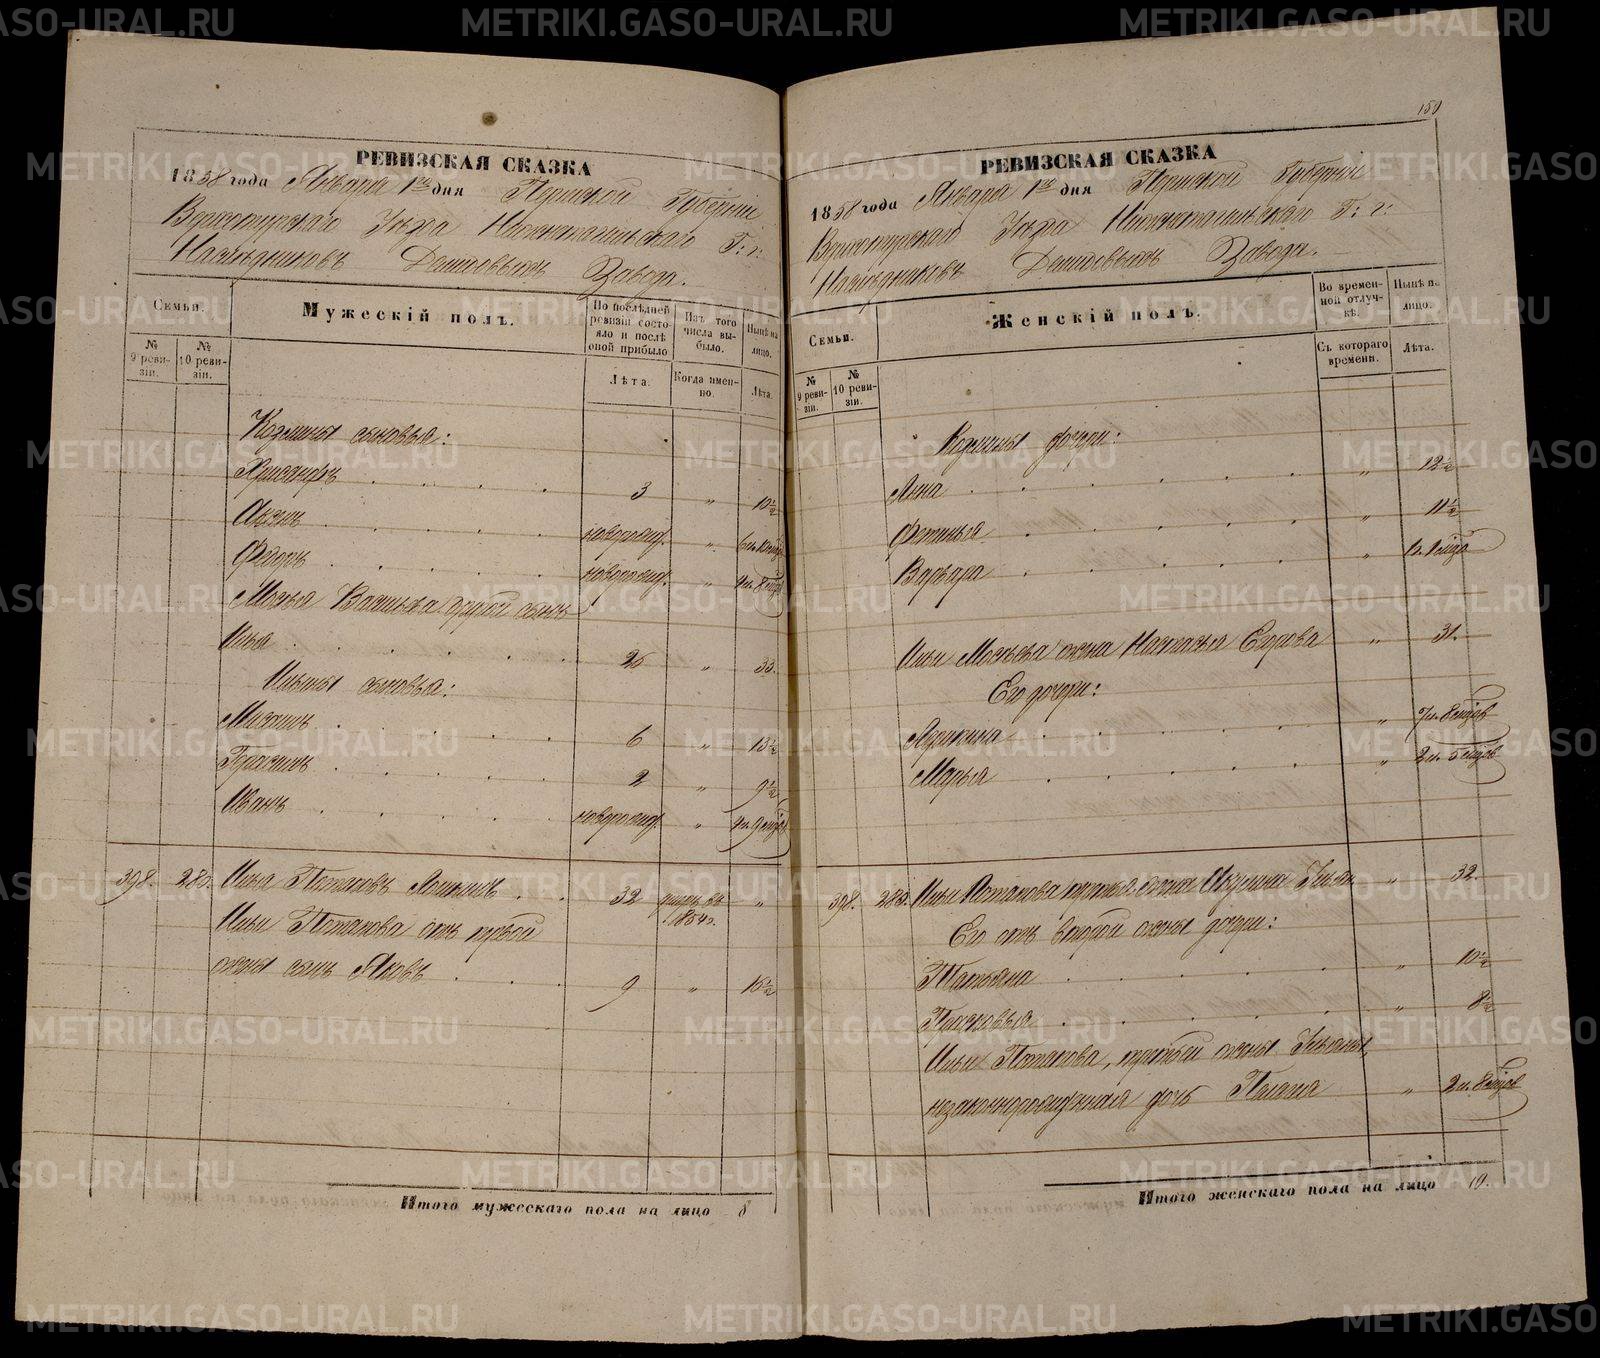 РЕВИЗСКАЯ СКАЗКА
1858 года Января 1го дня Пермской Губернiи
Верхотурскаго Уѣзда Нижнетагильскаго Г: г:
Наслѣдниковъ Демидовыхъ Завода.
Семьи.
№ 9 ревизiи.
№ 10 ревизiи.
Мужескiй полъ.
По послѣдней ревизiи состояло и послѣ оной прибыло
Лѣта.
Изъ того числа выбыло.
Когда именно.
Нынѣ на лицо.
Лѣта.
Козмины сыновья:
Хрисанфъ 3 " 10½
новорожд. "
Федоръ новорожд. "
Мосѣя Васильева другой сынъ
Илья 25 " 33.
Ильины сыновья:
6 " 13½
Герасимъ 2 " 9½
Иванъ новорожд. "
398. 280. Илья Потаповъ 32 1854г. "
Ильи Потапова отъ первой
жены сынъ Яковъ 9 " 16½
Итого мужескаго пола на лицо 8
150
РЕВИЗСКАЯ СКАЗКА
1858 года Января 1го дня Пермской Губернiи
Верхотурскаго Уѣзда Нижнетагильскаго Г: г:
Наслѣдниковъ Демидовыхъ Завода.
Семьи.
№ 9 ревизiи.
№ 10 ревизiи.
Женскiй полъ.
Во временной отлучкѣ.
Съ котораго времени.
Нынѣ на лицо.
Лѣта.
Козмины дочери:
Анна " 12½
Фетинья " 11½
Варвара "
Ильи Мосѣева жена Настасья Егорова " 31.
Его дочери:
"
Марья "
398. 280. Ильи Потапова третья жена " 32.
Его отъ второй жены дочери:
Татьяна " 10½
Прасковья " 8½
Ильи Потапова, третьей жены
незаконнорожденная дочь "
Итого женскаго пола на лицо 10.
METRIKI.GASO-URAL.RU